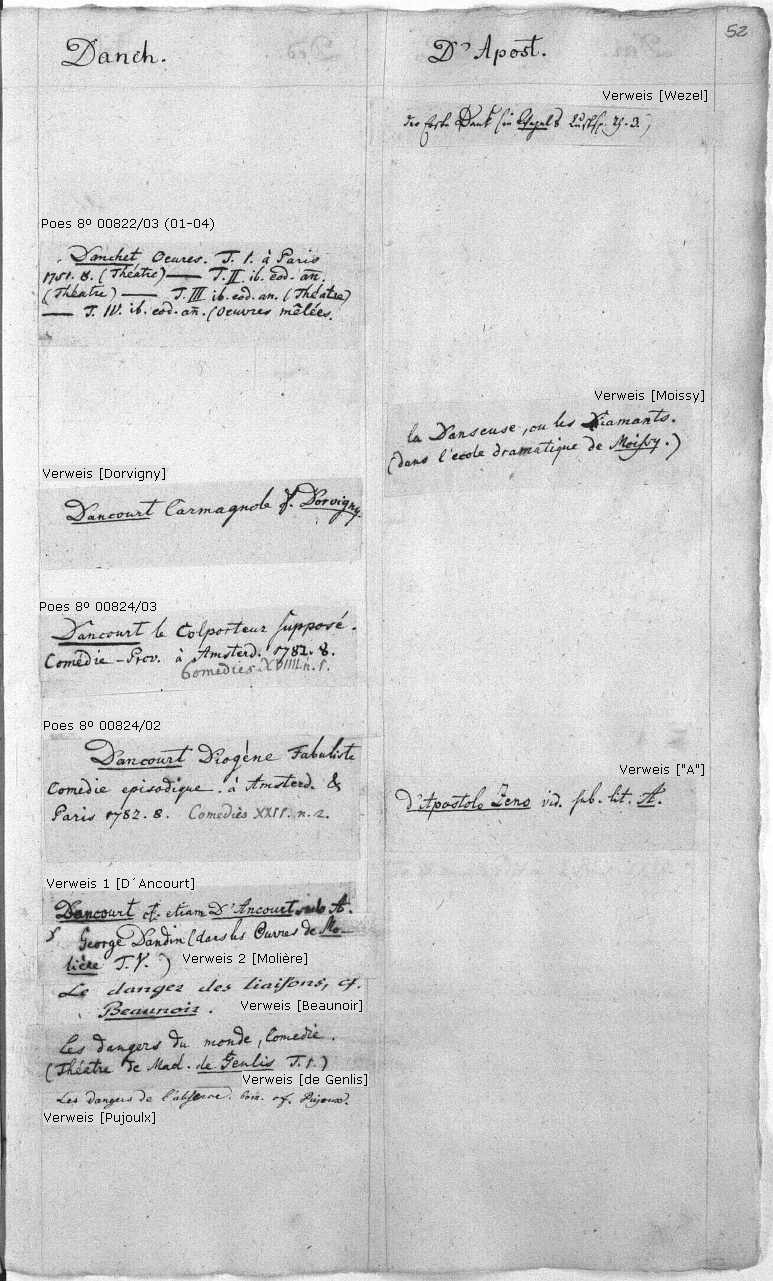 52
Danch.
Poes 8º 00822/03 (01-04)
Danchet Oeuvres. T. 1. à Paris
1751. 8. (Théatre) — T. II. ib. eod. an̅.
(Théatre) — T. III ib. eod. an. (Théatre)
— T. IV. ib. eod. an̅. (Oeuvres mêlées.
Verweis [Dorvigny]
Dancourt Carmagnole cf. Dorvigny.
Poes 8º 00824/03
Dancourt le Colporteur supposé.
Comédie-Prov. à Amsterd. 1782. 8.
Comedies XVIIII. n. 1.
Poes 8º 00824/02
Dancourt Diogène Fabuliste
Comedie episodique. à Amsterd. &
Paris 1782. 8. Comediès XXII. n. 2.
Verweis 1 [D´Ancourt]
Dancourt cf. etiam D'Ancourt sub A.
George Dandin (dans les Ouvres de Mo-
lière T. V.)
Verweis 2 [Molière]
Le danger des liaisons, cf.
Beaunoir.
Verweis [Beaunoir]
les dangers du monde, Comedie.
(Théatre de Mad. de Genlis T. 1.)
Verweis [de Genlis]
Les dangers de l'absence. Com. cf. Pujoux.
Verweis [Pujoulx]
D'Apost.
Verweis [Wezel]
der erste Dank (in Wezels Lustsp. Th. 3.)
Verweis [Moissy]
la Danseuse, ou les Diamants.
(dans l'ecole dramatique de Moissy.)
Verweis ["A"]
d'Apostolo Zeno vid. sub. lit. A.